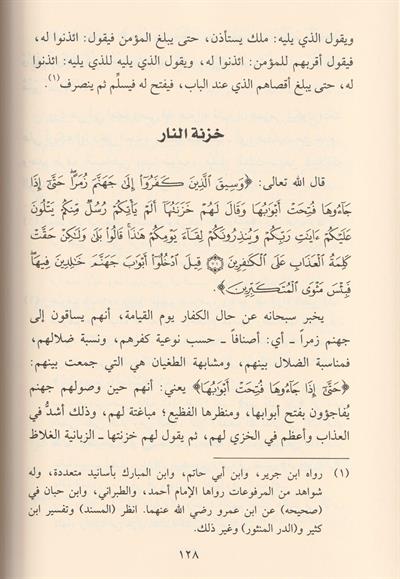 ويقول الذي يليه: ملك يستأذن، حتى يبلغ المؤمن فيقول: ائذنوا له،
فيقول أقربهم للمؤمن: ائذنوا له، ويقول الذي يليه للذي يليه: ائذنوا
له، حتى يبلغ أقصاهم الذي عند الباب، فيفتح له فيسلِّم ثم ينصرف(١).
خزنة النار
قال الله تعالى: ﴿وَسِيقَ الَّذِينَ كَفَرُوا إِلَىٰ جَهَنَّمَ زُمَرًا حَتَّىٰ إِذَا
جَاءُوهَا فُتِحَتْ أَبْوَابُهَا وَقَالَ لَهُمْ خَزَنَتُهَا أَلَمْ يَأْتِكُمْ رُسُلٌ مِنْكُمْ يَتْلُونَ
عَلَيْكُمْ ءَايَٰتِ رَبِّكُمْ وَيُنذِرُونَكُمْ لِقَاءَ يَوْمِكُمْ هَٰذَا قَالُوا بَلَىٰ وَلَٰكِنْ حَقَّتْ
كَلِمَةُ الْعَذَابِ عَلَى الْكَٰفِرِينَ ۝٧١ قِيلَ ادْخُلُوا أَبْوَٰبَ جَهَنَّمَ خَٰلِدِينَ فِيهَا
فَبِئْسَ مَثْوَى الْمُتَكَبِّرِينَ﴾.
يخبر سبحانه عن حال الكفار يوم القيامة، أنهم يساقون إلى
جهنم زمراً ـ أي: أصنافاً ـ حسب نوعية كفرهم، ونسبة ضلالهم،
فمناسبة الضلال بينهم، ومشابهة الطغيان هي التي جمعت بينهم:
﴿حَتَّىٰ إِذَا جَاءُوهَا فُتِحَتْ أَبْوَابُهَا﴾ يعني: أنهم حين وصولهم جهنم
يُفاجؤون بفتح أبوابها، ومنظرها الفظيع؛ مباغتة لهم، وذلك أشدُّ في
العذاب وأعظم في الخزي لهم، ثم يقول لهم خزنتها ـ الزبانية الغلاظ
(١) رواه ابن جرير، وابن أبي حاتم، وابن المبارك بأسانيد متعددة، وله
شواهد من المرفوعات رواها الإمام أحمد، والطبراني، وابن حبان في
(صحيحه) عن ابن عمرو رضي الله عنهما. انظر (المسند) وتفسير ابن
كثير و(الدر المنثور) وغير ذلك.
١٢٨